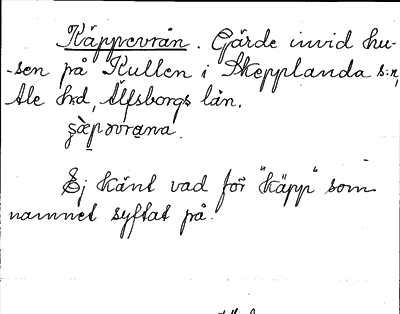 Käppevrån. Gärde invid hu-
-sen på Kullen i Skepplanda s:n,
Ale hrd, Älfsborgs län.
ʂæ̀pəvrɑna.
Ej känt vad för "käpp" som
namnet syftat på.